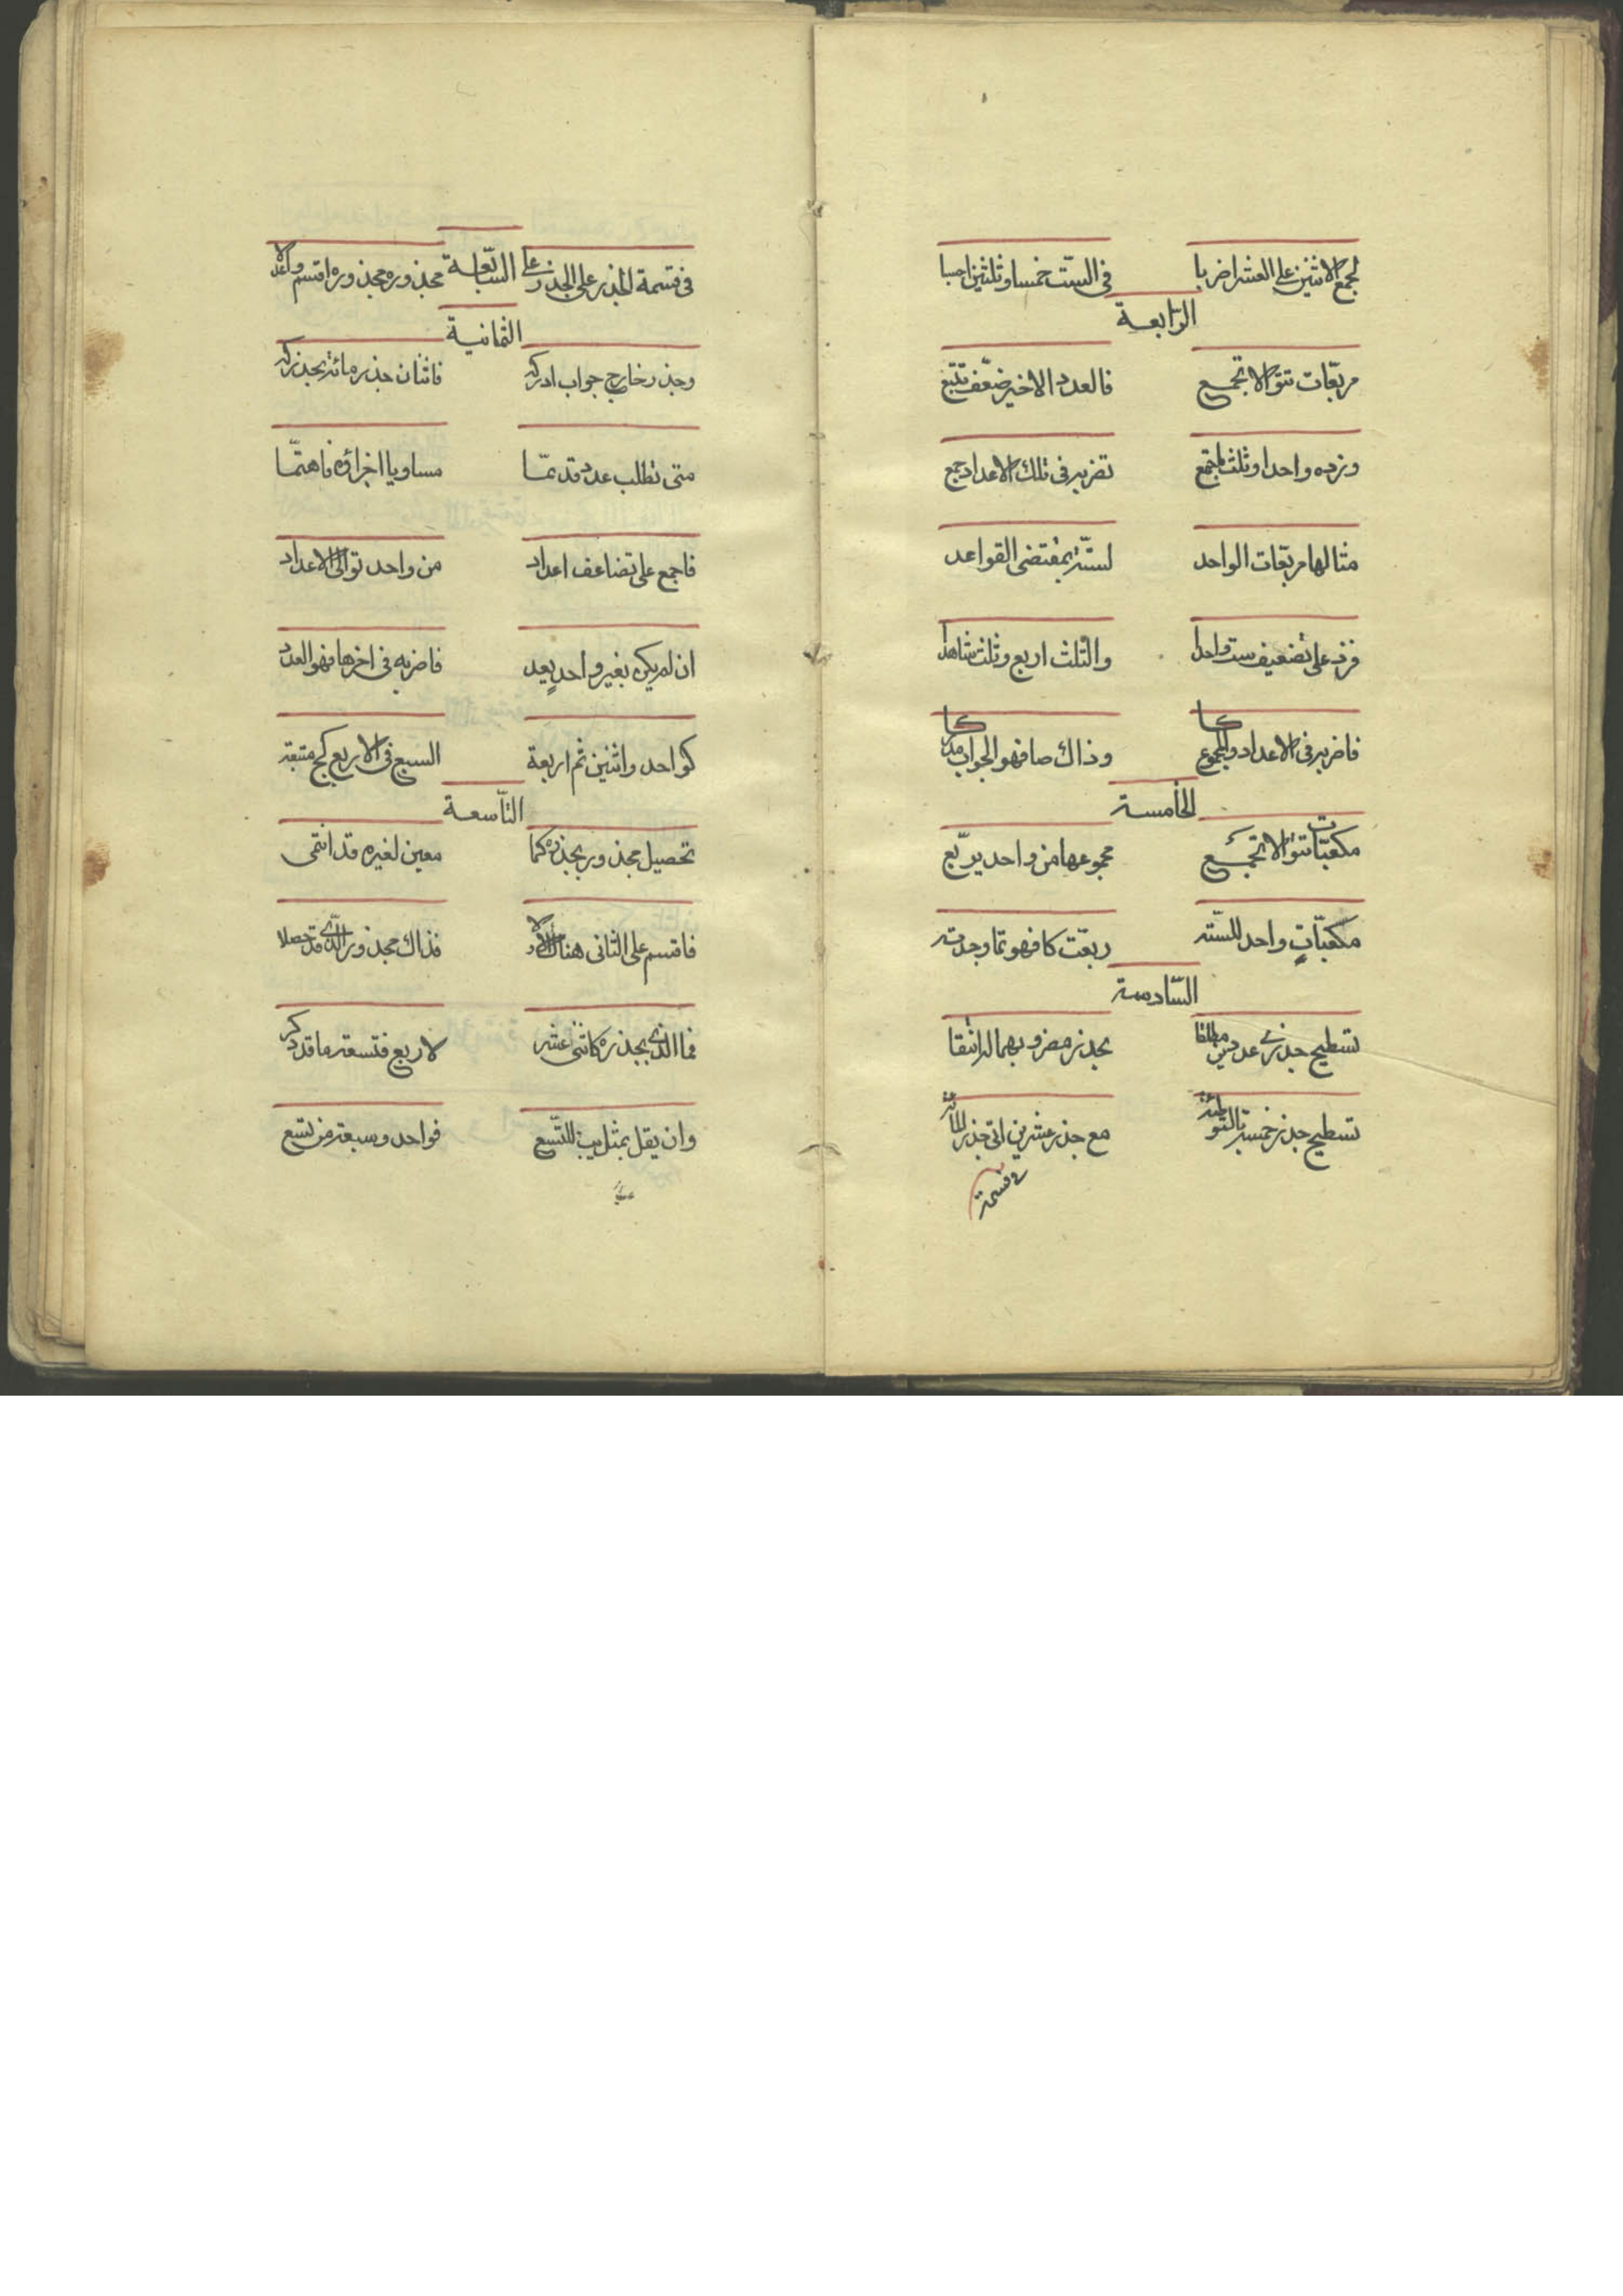 لجمع الاثنين على العشر اضربا في الست خمسا وثلثين احسبا
الرابعة
مربعات تتوالا تجمع فالعدد الاخير ضعف تتبع
وزده واحدا وثلث المجتمع تضربه في تلك الاعداد جمع
مثالها مربعات الواحد لستة بمقتضى القواعد
فزد على تضعيف ست واحدا والثلث اربع وثلث شاهدا
فاضربه في الاعداد والمجموع كا وذاك صا فهو الجواب مدركا
الخامسة
مكعبات تتوالا تجمع مجموعها من واحد يربع
مكعبات واحد للسته ربعت كا فهو تما وجدته
السادسة
تسطيح جذري عددين مطلقا بجذر مضروبهما
تسطيح جذر خمسة مع جذر عشرين اتى جذر المائة
في قسمة
في قسمة الجذر على الجذر على السابعة مجذوره مجذوره اقسم
الثمانية
وجذر خارج جواب ادركه فاثنان جذر مائة بجذر كه
متى تطلب عدد قد تما مساويا اجزائه فاهتما
فاجمع على تضاعف اعداد من واحد توالى الاعداد
ان لم يكن بغير واحد يعد فاضربه في اخرها فهو العدد
كواحد واثنين ثم اربعة السبع في الاربع كح متبعه
التاسعة
تحصيل مجذور بجذره كما معين لغيره قد انتمى
فاقسم على الثاني هناك الاولا فذاك مجذور الذي قد حصلا
فما الذي بجذره كاثنى عشر لاربع فتسعة ما قد ذكر
وان يقل بمثل يب للتسع فواحد وسبعة من تسع